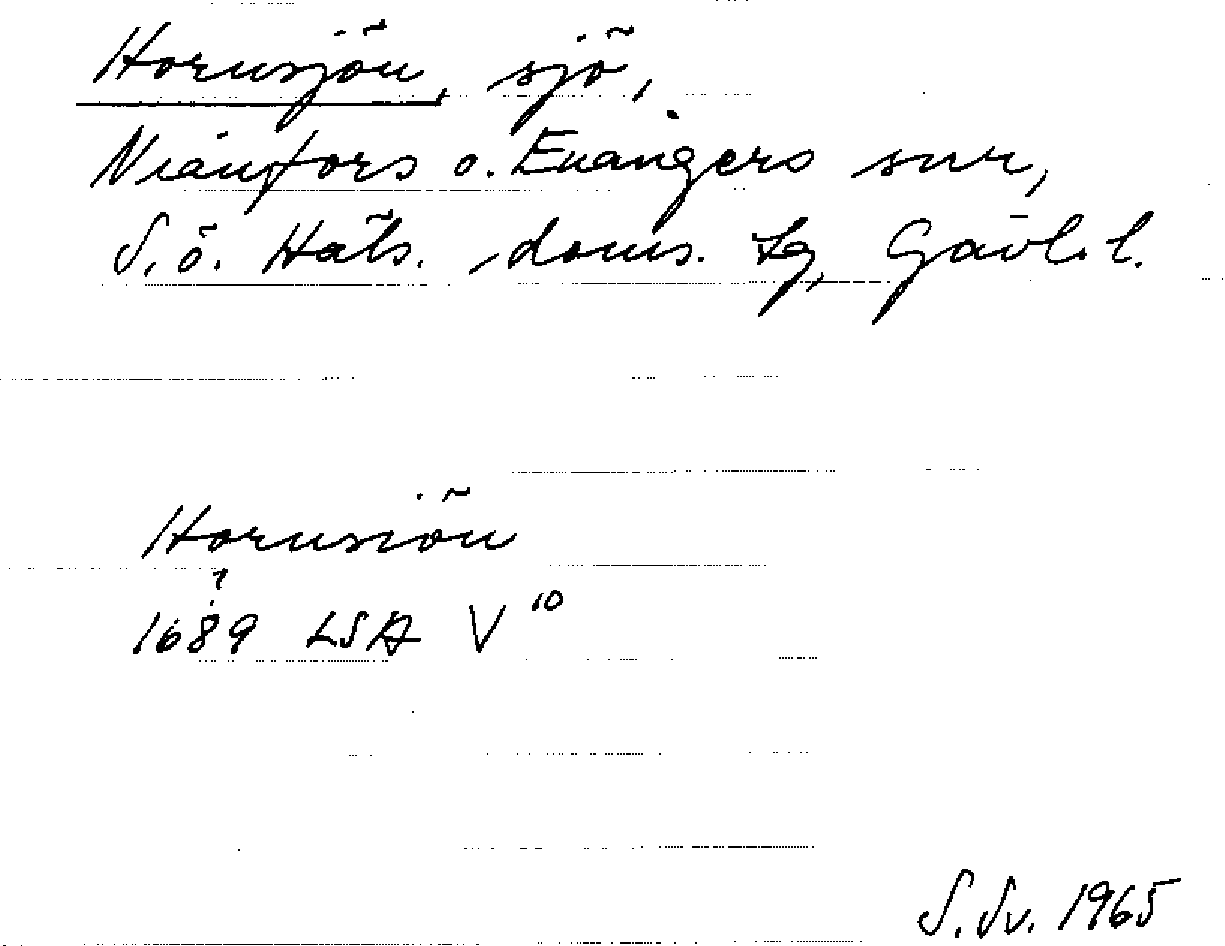 Hornsjön, sjö,
Nianfors o. Enångers snr,
S.ö. Häls. doms. Lg, Gävl. l.
Hornsiön
?
1689 LSA V 10
S.Sv. 1965